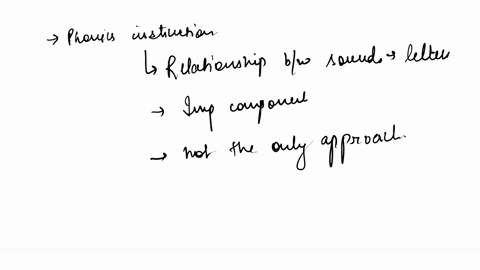 → Phonics instruction
↳ Relationship b/w sounds → letters
→ Imp component
→ not the only approach.